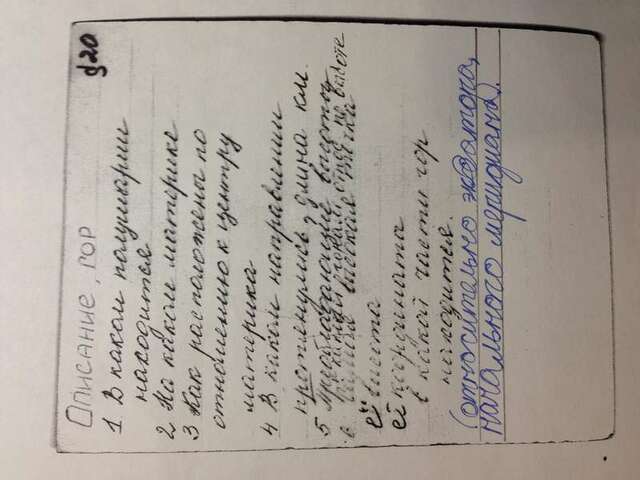 §20
Описание гор
1 В каком полушарии
находится
2 На каком материке
3 Как расположены по
отношению к центру
материка
4 В каком направлении
протянулись, длина км.
5 Преобладающие высоты
в
её высота
её координата
в какой части гор
находится.
(относительно экватора,
начального меридиана).